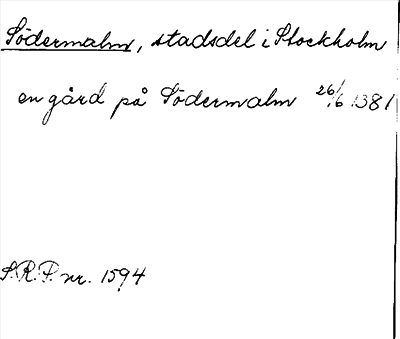 Södermalm, stadsdel i Stockholm
en gård på Södermalm 26/6 1381
S.R.P. nr. 1594